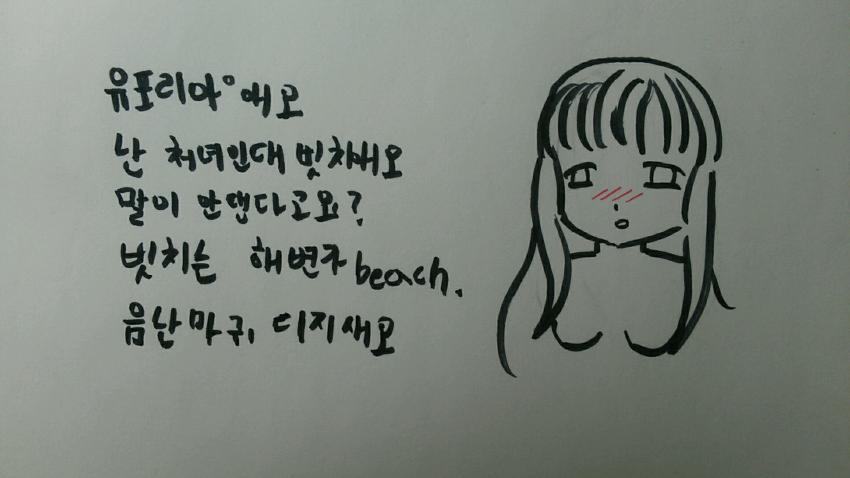 유포리아에고
난 처녀인대 빗치세오
말이 안댄다고요?
빗치는 해변가 beach.
음난마귀, 디지새오